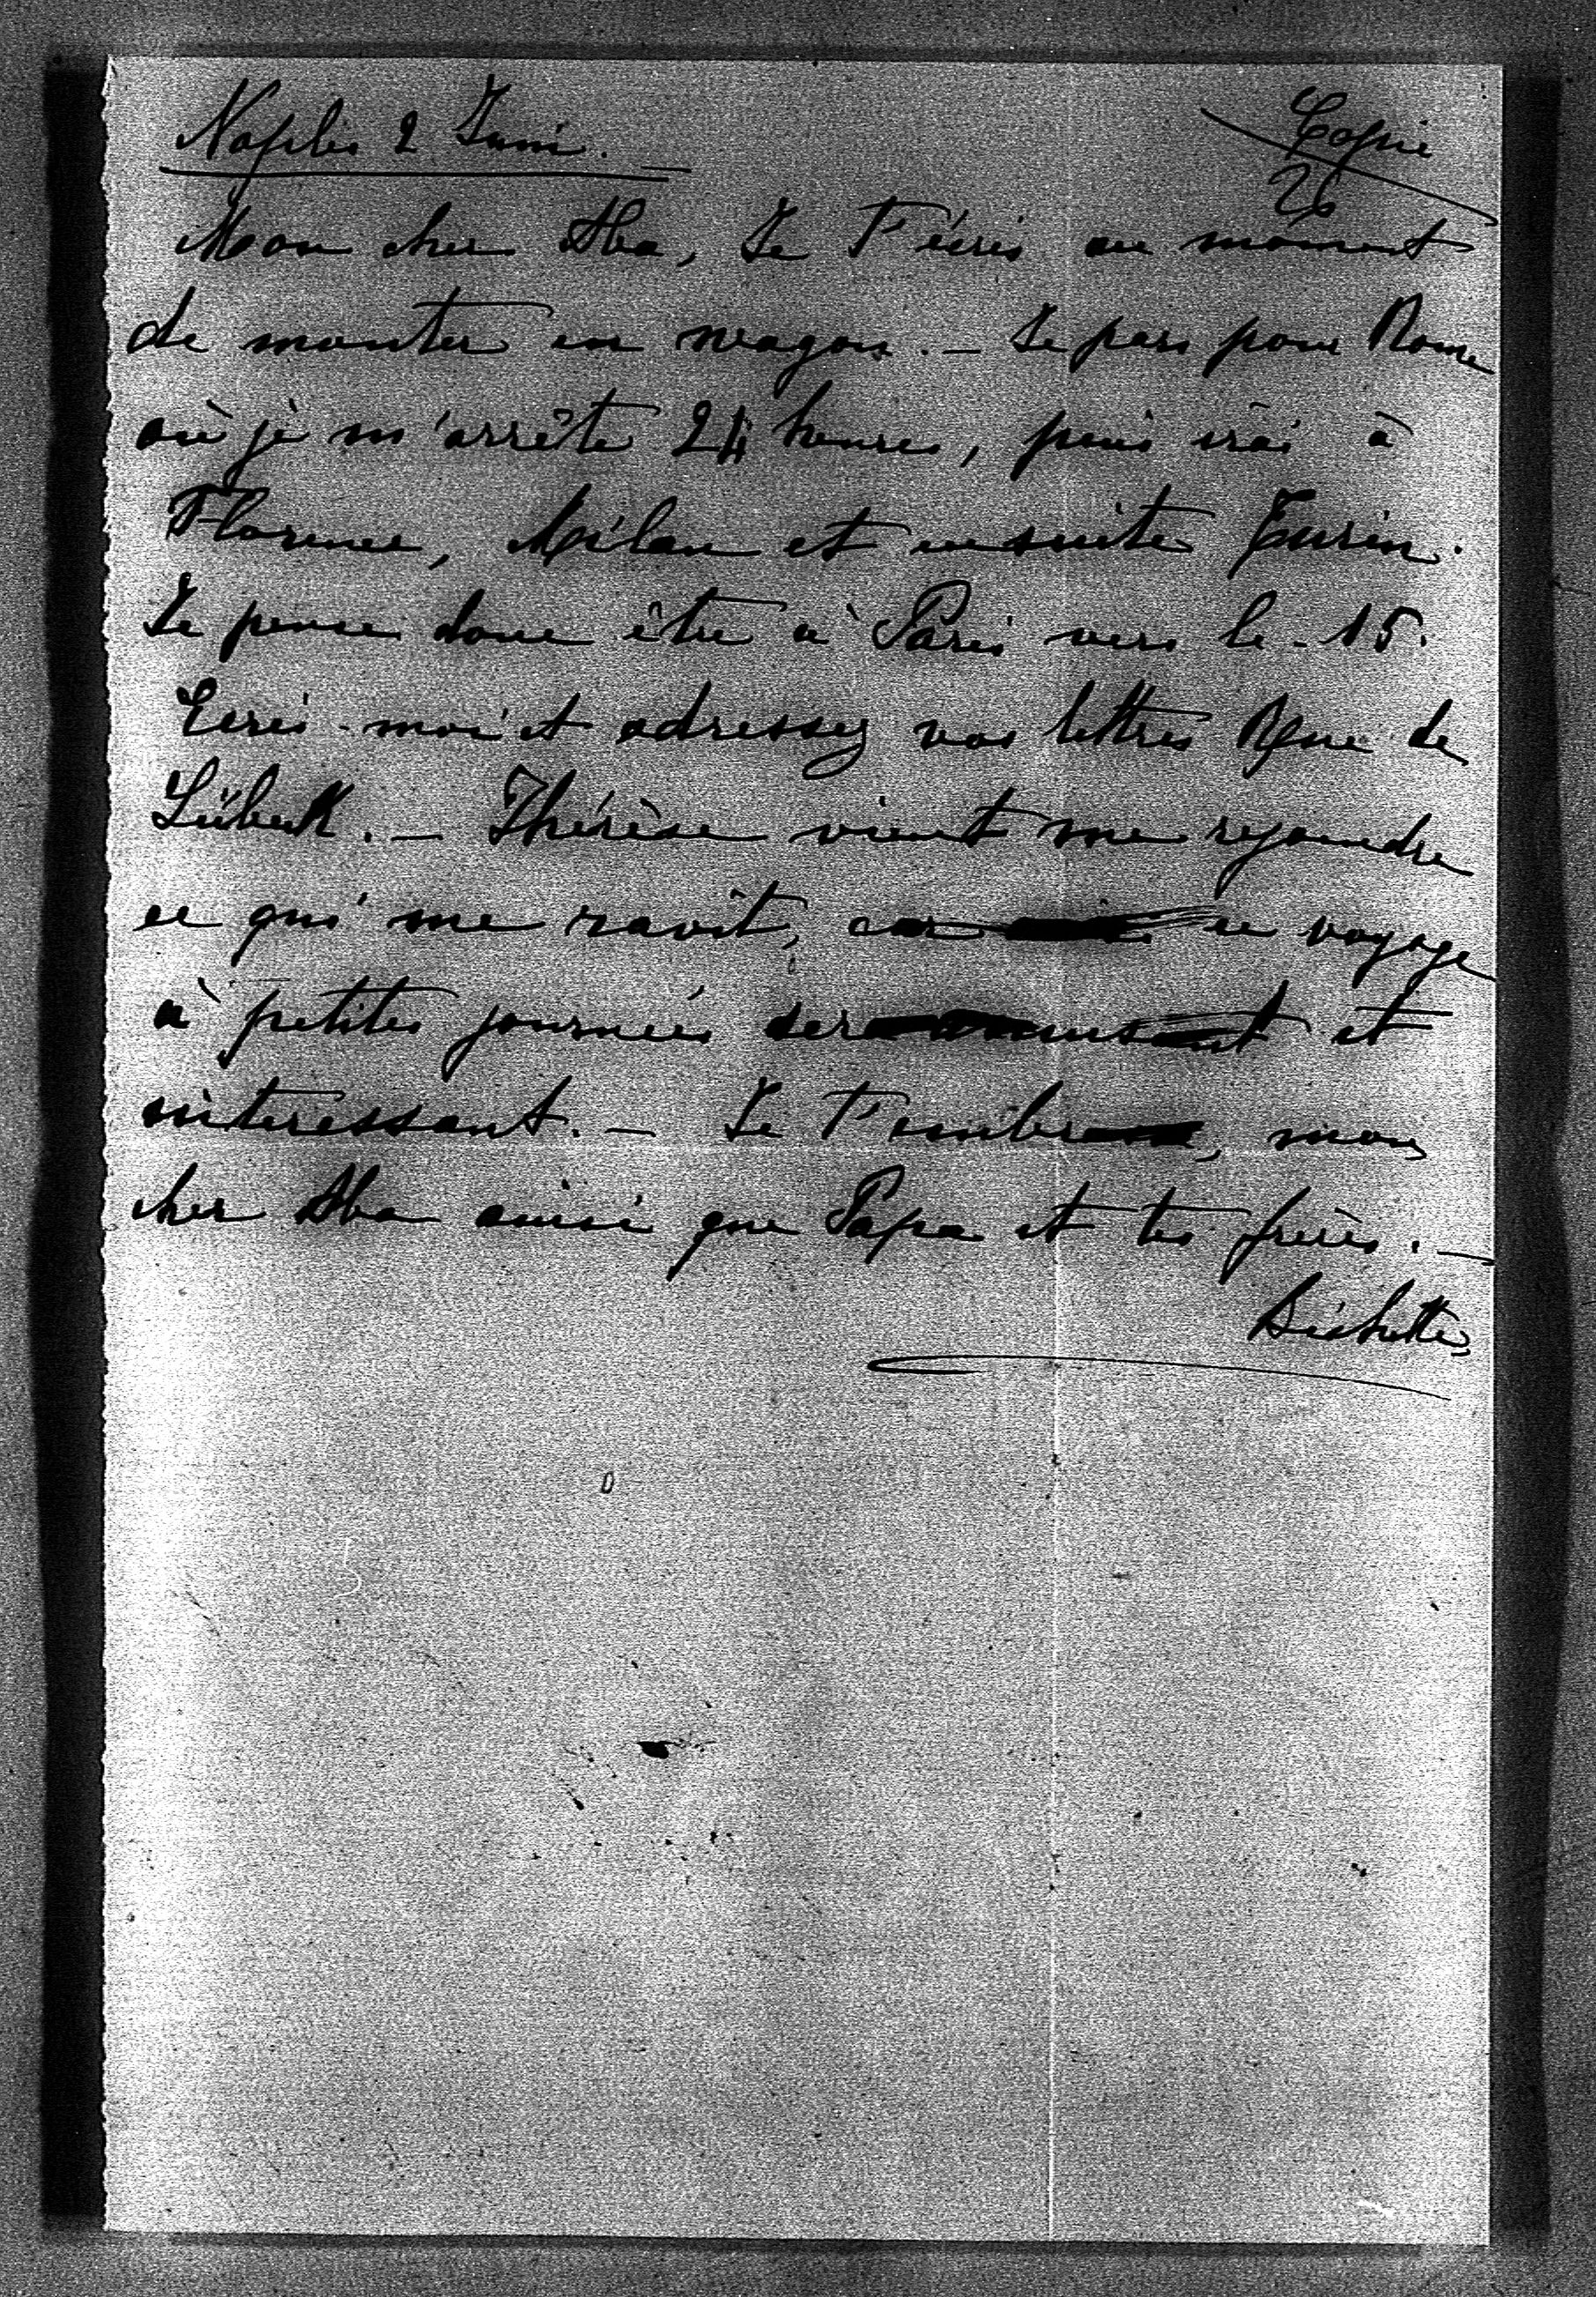 Naples 2 Juin.
Copie
26
Mon cher Aba, Je t'écris au moment
de monter en wagon. — Je pars pour Rome
où je m'arrête 24 heures, puis irai à
Florence, Milan et ensuite Turin.
Je pense donc être à Paris vers le 15.
Ecris-moi et adressez vos lettres Rue de
Lübeck. — Thérèse vient me rejoindre
ce qui me ravit, car ce voyage
à petites journées sera amusant et
intéressant. — Je t'embrasse, mon
cher Aba ainsi que Papa et tes frères. —
Bichette